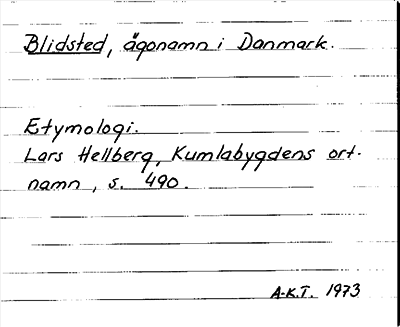 Blidsted, ägonamn i Danmark.
Etymologi.
Lars Hellberg, Kumlabygdens ort-
namn, s. 490.
A-K.T. 1973